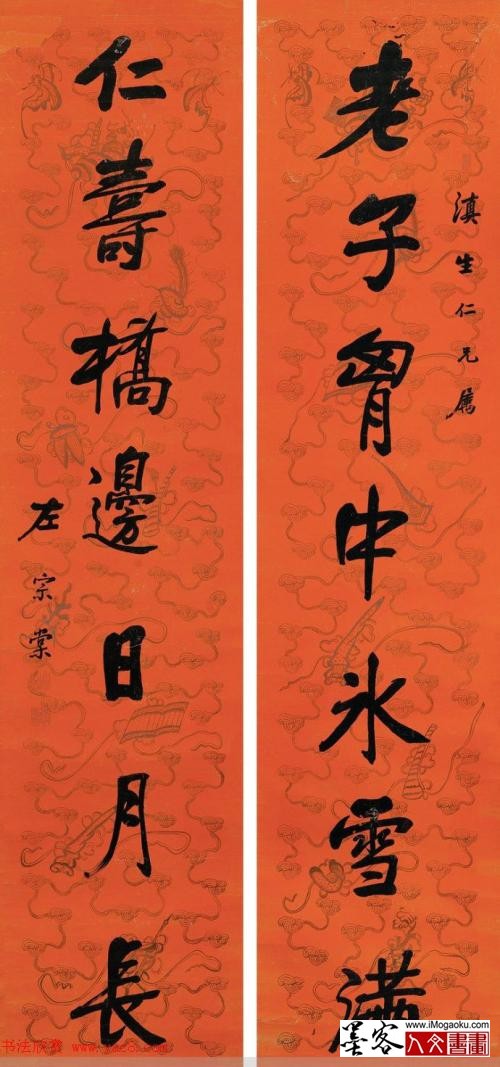 滇生仁兄属
老子胷中氷雪满
仁壽橋邊日月長
左宗棠
墨客
www.iMogaoku.com
人文書畫
书法欣赏